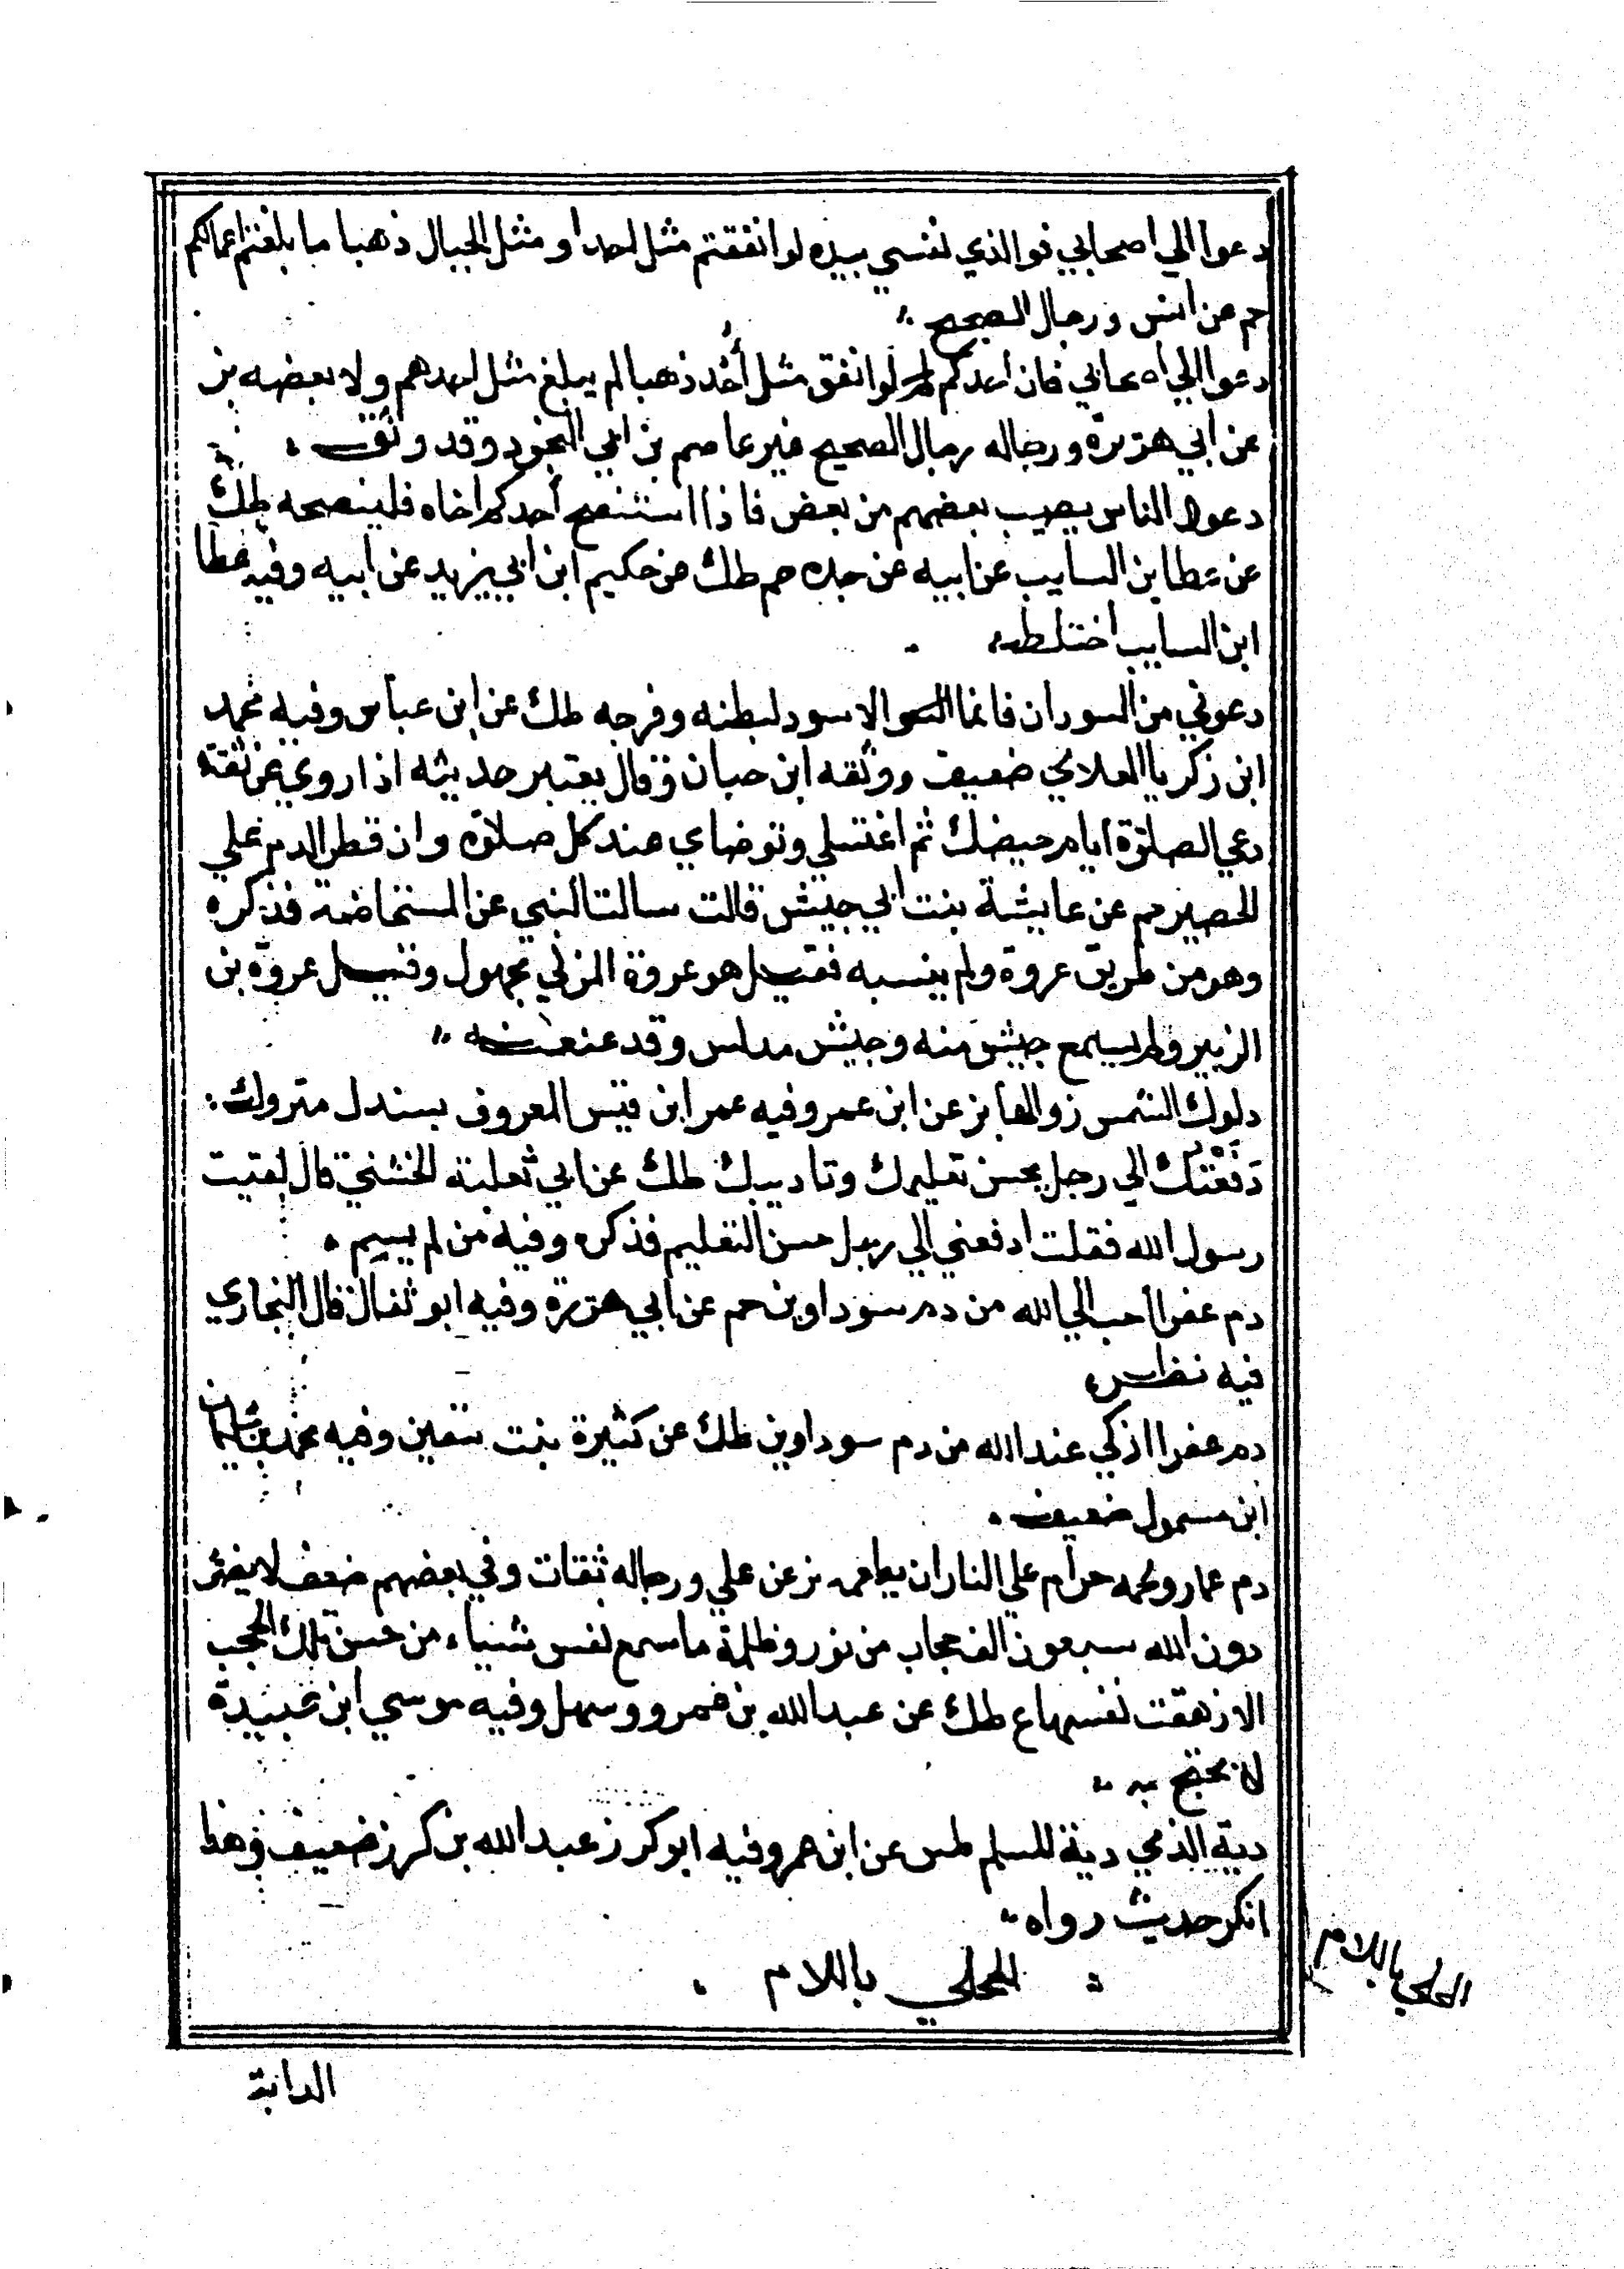 دعوا الي اصحابي فوالذي نفسي بيده لو انفقتم مثل احد او مثل الجبال ذهبا ما بلغتم اعمالكم
حم عن انس ورجال الصحيح
دعوا الي اصحابي فان احدكم لو انفق مثل أُحُد ذهبا لم يبلغ مثل احدهم ولا بعضه بز
عن ابي هريرة ورجاله رجال الصحيح غير عاصم بن ابي النجود وقد وثق
دعوا الناس يصيب بعضهم من بعض فاذا استنصح أحدكم اخاه فلينصحه طك
عن عطا بن السايب عن ابيه عن جده حم طك عن حكيم ابن ابي يزيد عن ابيه وفيه عطا
ابن السايب اختلط
دعوني من السودان فانما الاسود لبطنه وفرجه طك عن ابن عباس وفيه محمد
ابن زكريا العلاي ضعيف ووثقه ابن حبان وقال يعتبر حديثه اذا روي عن ثقة
دعي الصلاة ايام حيضك ثم اغتسلي وتوضاي عند كل صلاة وان قطر الدم علي
الحصير حم عن عايشة بنت ابي حبيش قالت سالت النبي عن المستحاضة فذكره
وهو من طريق عروة ولم ينسبه فقيل هو عروة المزني مجهول وقيل عروة بن
الزبير ولم يسمع حبيش منه وحبيش مدلس وقد عنعنه
دلوك الشمس زوالها بز عن ابن عمر وفيه عمر ابن قيس المعروف بسندل متروك
دَفَعْتُك الي رجل يحسن تعليمك وتاديبك طك عن ابي ثعلبة الخشني قال لقيت
رسول الله فقلت ادفعني الي رجل حسن التعليم فذكره وفيه من لم يسم
دم عفرا احب الي الله من دم سوداوين حم عن ابي هريرة وفيه ابو ثفال قال البخاري
فيه نظر
دم عفرا ازكي عند الله من دم سوداوين طك عن كثيرة بنت سفين وفيه محمد بن سليمان
ابن مسمول ضعيف
دم عمار ولحمه حرام علي النار ان يطعمه بز عن علي ورجاله ثقات وفي بعضهم ضعف لا يضر
دون الله سبعون الف حجاب من نور وظلمة ما سمع نفس شياء من حسن تلك الحجب
الا زهقت نفسها ع طك عن عبدالله بن عمرو وسهل وفيه موسي ابن عبيدة
لا يحتج به
دية الذمي دية المسلم طس عن ابن عمر وفيه ابو كرز عبدالله بن كرز ضعيف وهذا
انكر حديث رواه
المحلي باللام
المحلي باللام
الدابة